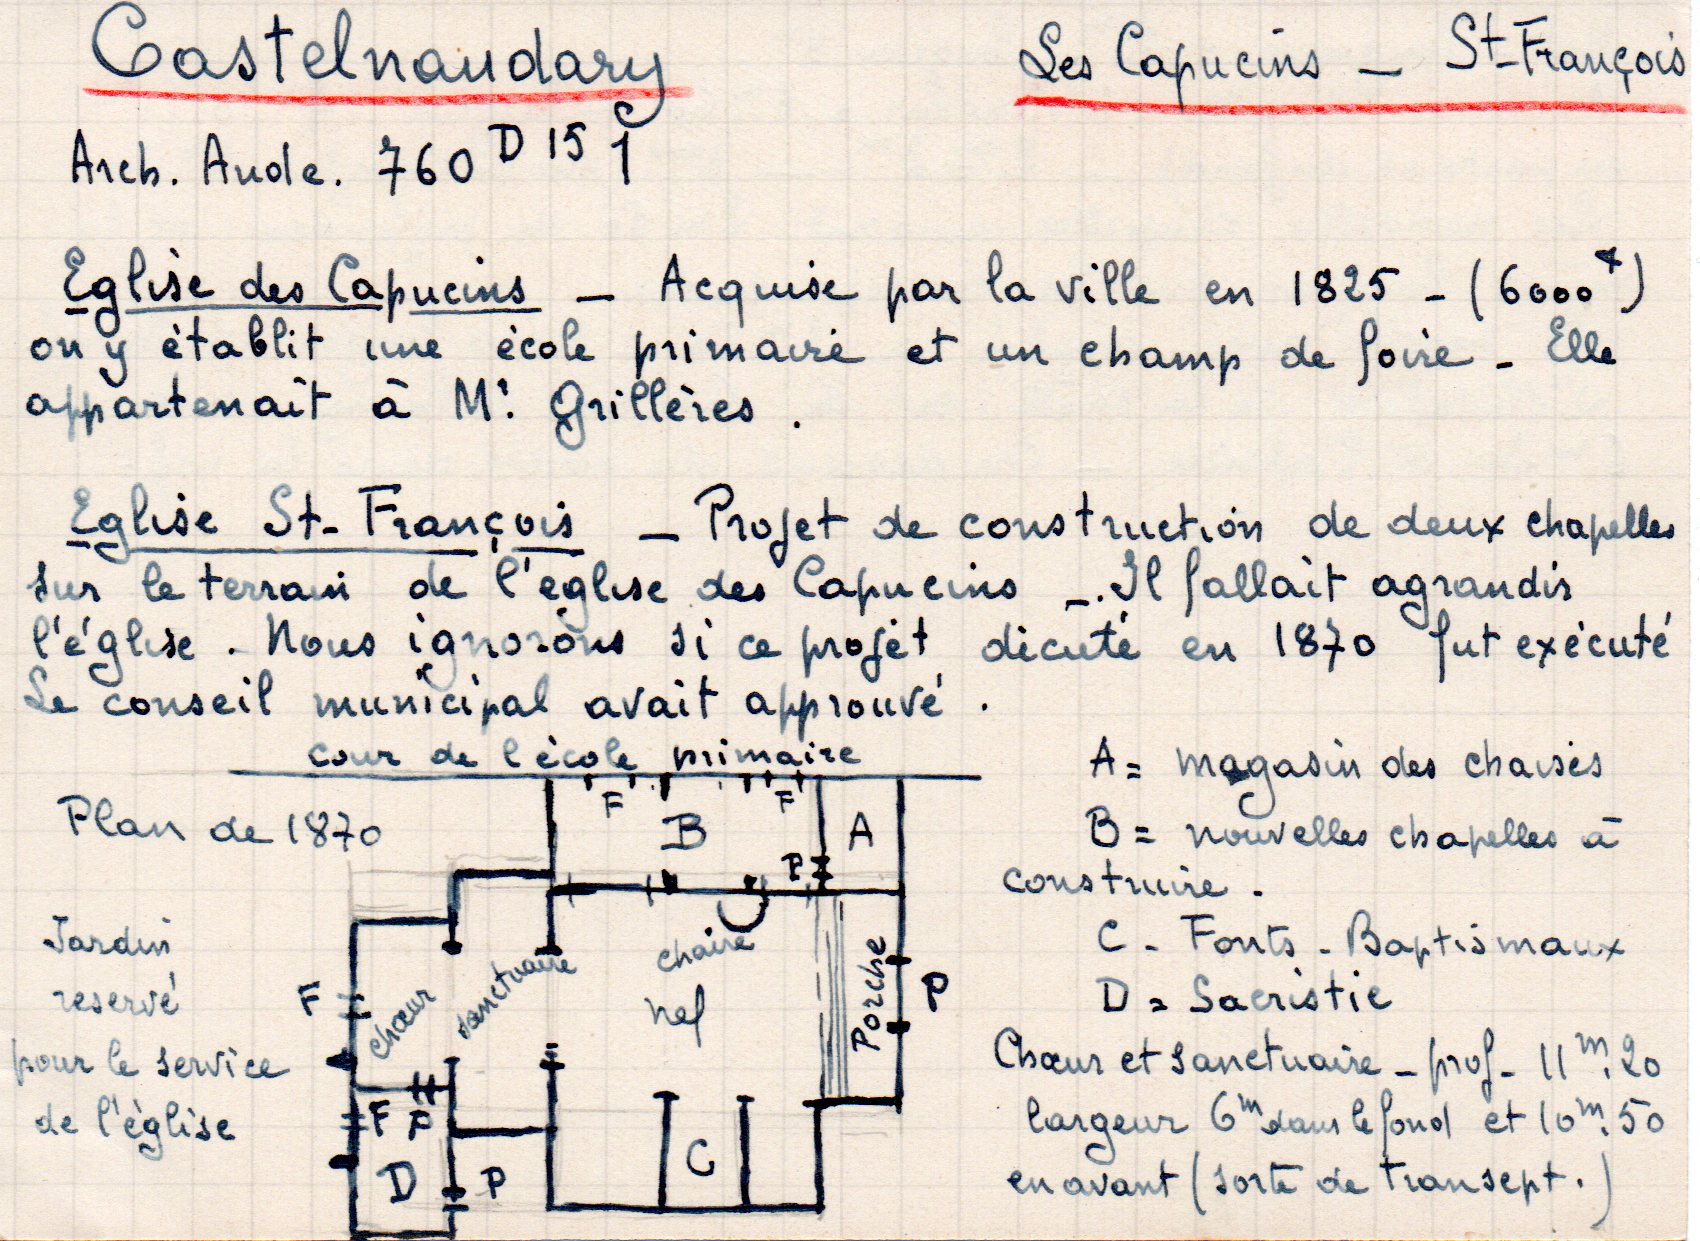 Castelnaudary
Les Capucins - St-François
Arch. Aude. 760 D 15
Eglise des Capucins - Acquise par la ville en 1825 - (6000 f)
on y établit une école primaire et un champ de foire - Elle
appartenait à Mr. Grillères.
Eglise St-François - Projet de construction de deux chapelles
sur le terrain de l'église des Capucins -. Il fallait agrandir
l'église. Nous ignorons si ce projet dicuté en 1870 fut exécuté
Le conseil municipal avait approuvé.
cour de l'école primaire
Plan de 1870
F
F
B
A
P
Jardin
reservé
pour le service
de l'église
F
chœur
sanctuaire
chaire
nef
Porche
P
F
P
D
P
C
A = magasin des chaises
B = nouvelles chapelles à
construire.
C - Fonts-Baptismaux
D = Sacristie
Chœur et sanctuaire - prof - 11m.20
largeur 6m dans le fond et 10m.50
en avant (sorte de transept.)